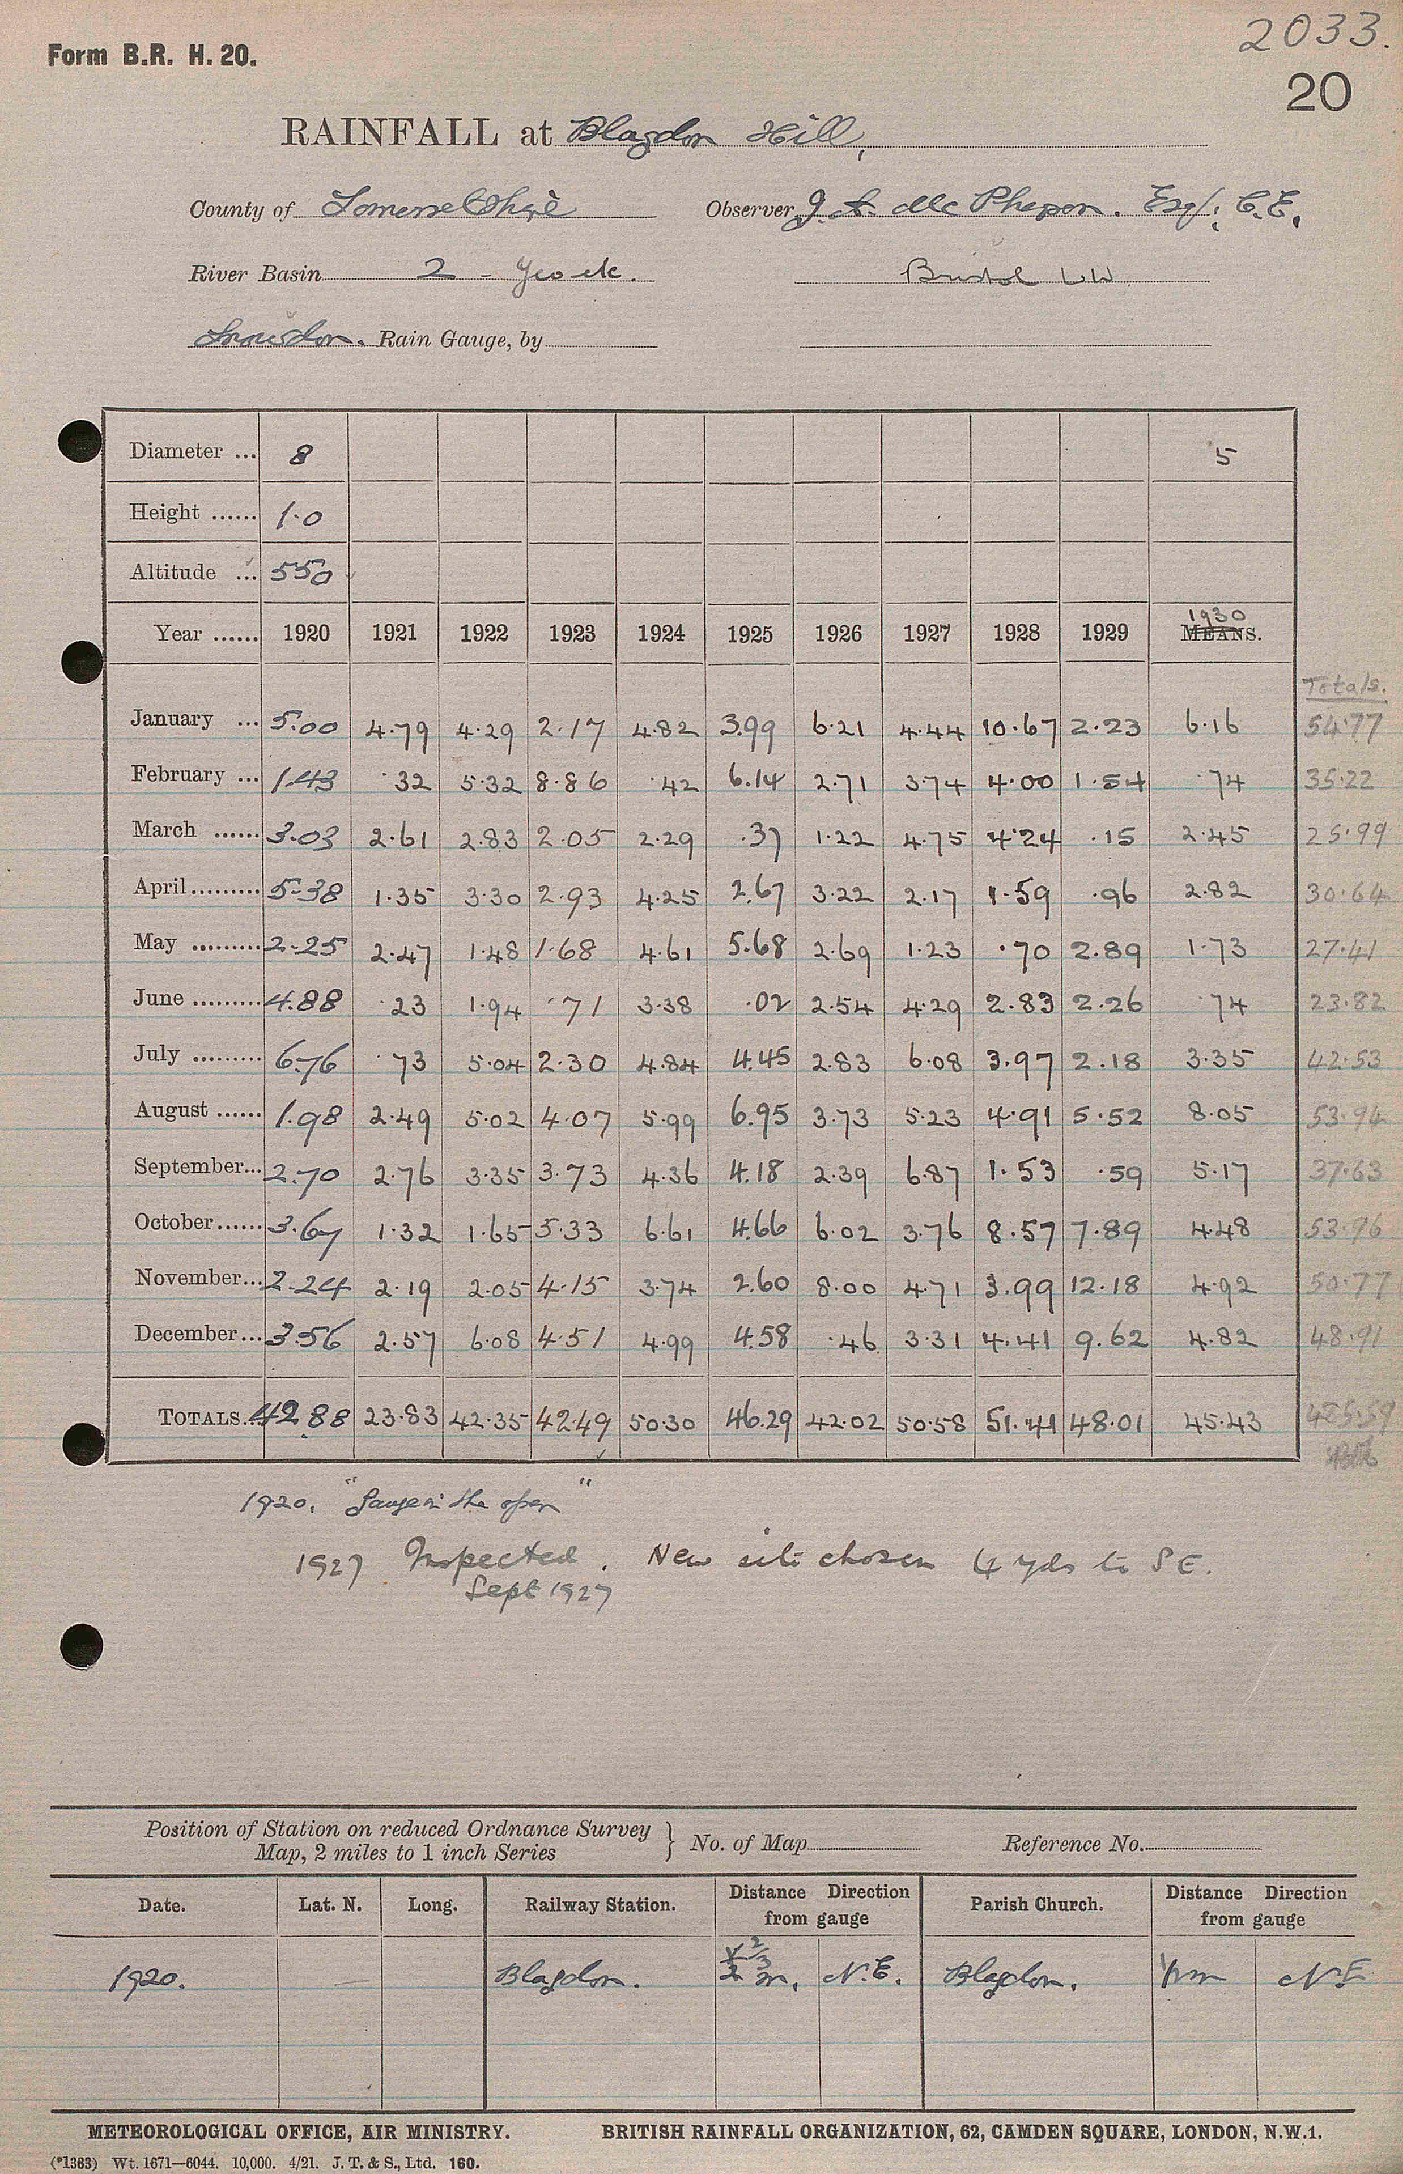 2033.
Form B.R. H. 20.
20
RAINFALL at Blagdon Hill,
County of Somersetshire Observer J. A. Mc Pherson. Esq; C.E.
River Basin 2 - Yeo etc. Bristol W.W.
Snowdon. Rain Gauge, by
Diameter ... 8 5
Height ...... 1.0
Altitude ... 550
Year ...... 1920 1921 1922 1923 1924 1925 1926 1927 1928 1929 1930 MEANS.
Totals.
January ... 5.00 4.79 4.29 2.17 4.82 3.99 6.21 4.44 10.67 2.23 6.16 54.77
February ... 1.43 .32 5.32 8.86 .42 6.14 2.71 3.74 4.00 1.54 .74 35.22
March ...... 3.03 2.61 2.83 2.05 2.29 .37 1.22 4.75 4.24 .15 2.45 25.99
April ......... 5.38 1.35 3.30 2.93 4.25 2.67 3.22 2.17 1.59 .96 2.82 30.64
May ......... 2.25 2.47 1.48 1.68 4.61 5.68 2.69 1.23 .70 2.89 1.73 27.41
June ......... 4.88 .23 1.94 .71 3.38 .02 2.54 4.29 2.83 2.26 .74 23.82
July ......... 6.76 .73 5.04 2.30 4.84 4.45 2.83 6.08 3.97 2.18 3.35 42.53
August ...... 1.98 2.49 5.02 4.07 5.99 6.95 3.73 5.23 4.91 5.52 8.05 53.94
September... 2.70 2.76 3.35 3.73 4.36 4.18 2.39 6.87 1.53 .59 5.17 37.63
October ...... 3.67 1.32 1.65 5.33 6.61 4.66 6.02 3.76 8.57 7.89 4.48 53.96
November... 2.24 2.19 2.05 4.15 3.74 2.60 8.00 4.71 3.99 12.18 4.92 50.77
December... 3.56 2.57 6.08 4.51 4.99 4.58 .46 3.31 4.41 9.62 4.82 48.91
TOTALS... 42.88 23.83 42.35 42.49 50.30 46.29 42.02 50.58 51.41 48.01 45.43 485.59
1920. "Gauge in the open"
1927 Inspected. New site chosen 4 yds to SE.
Sept 1927
Position of Station on reduced Ordnance Survey
Map, 2 miles to 1 inch Series } No. of Map Reference No.
Date. Lat. N. Long. Railway Station. Distance Direction from gauge Parish Church. Distance Direction from gauge
1920. Blagdon. 2/3 m. N.E. Blagdon. N.E.
METEOROLOGICAL OFFICE, AIR MINISTRY. BRITISH RAINFALL ORGANIZATION, 62, CAMDEN SQUARE, LONDON, N.W.1.
(*1363) Wt. 1671—6044. 10,000. 4/21. J. T. & S., Ltd. 160.